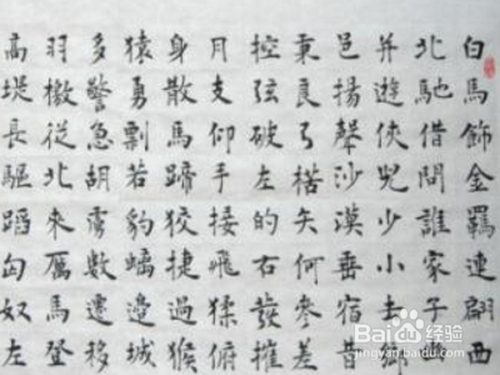 白馬飾金羈連翩西
北馳借問誰家子幽
并遊俠兒少小去鄉
邑揚聲沙漠垂宿昔
秉良弓楛矢何參差
控弦破左的右發摧
月支仰手接飛猱俯
身散馬蹄狡捷過猴
猿勇剽若豹螭邊城
多警急胡虜數遷移
羽檄從北來厲馬登
高堤長驅蹈匈奴左
Baidu 经验
jingyan.baidu.com